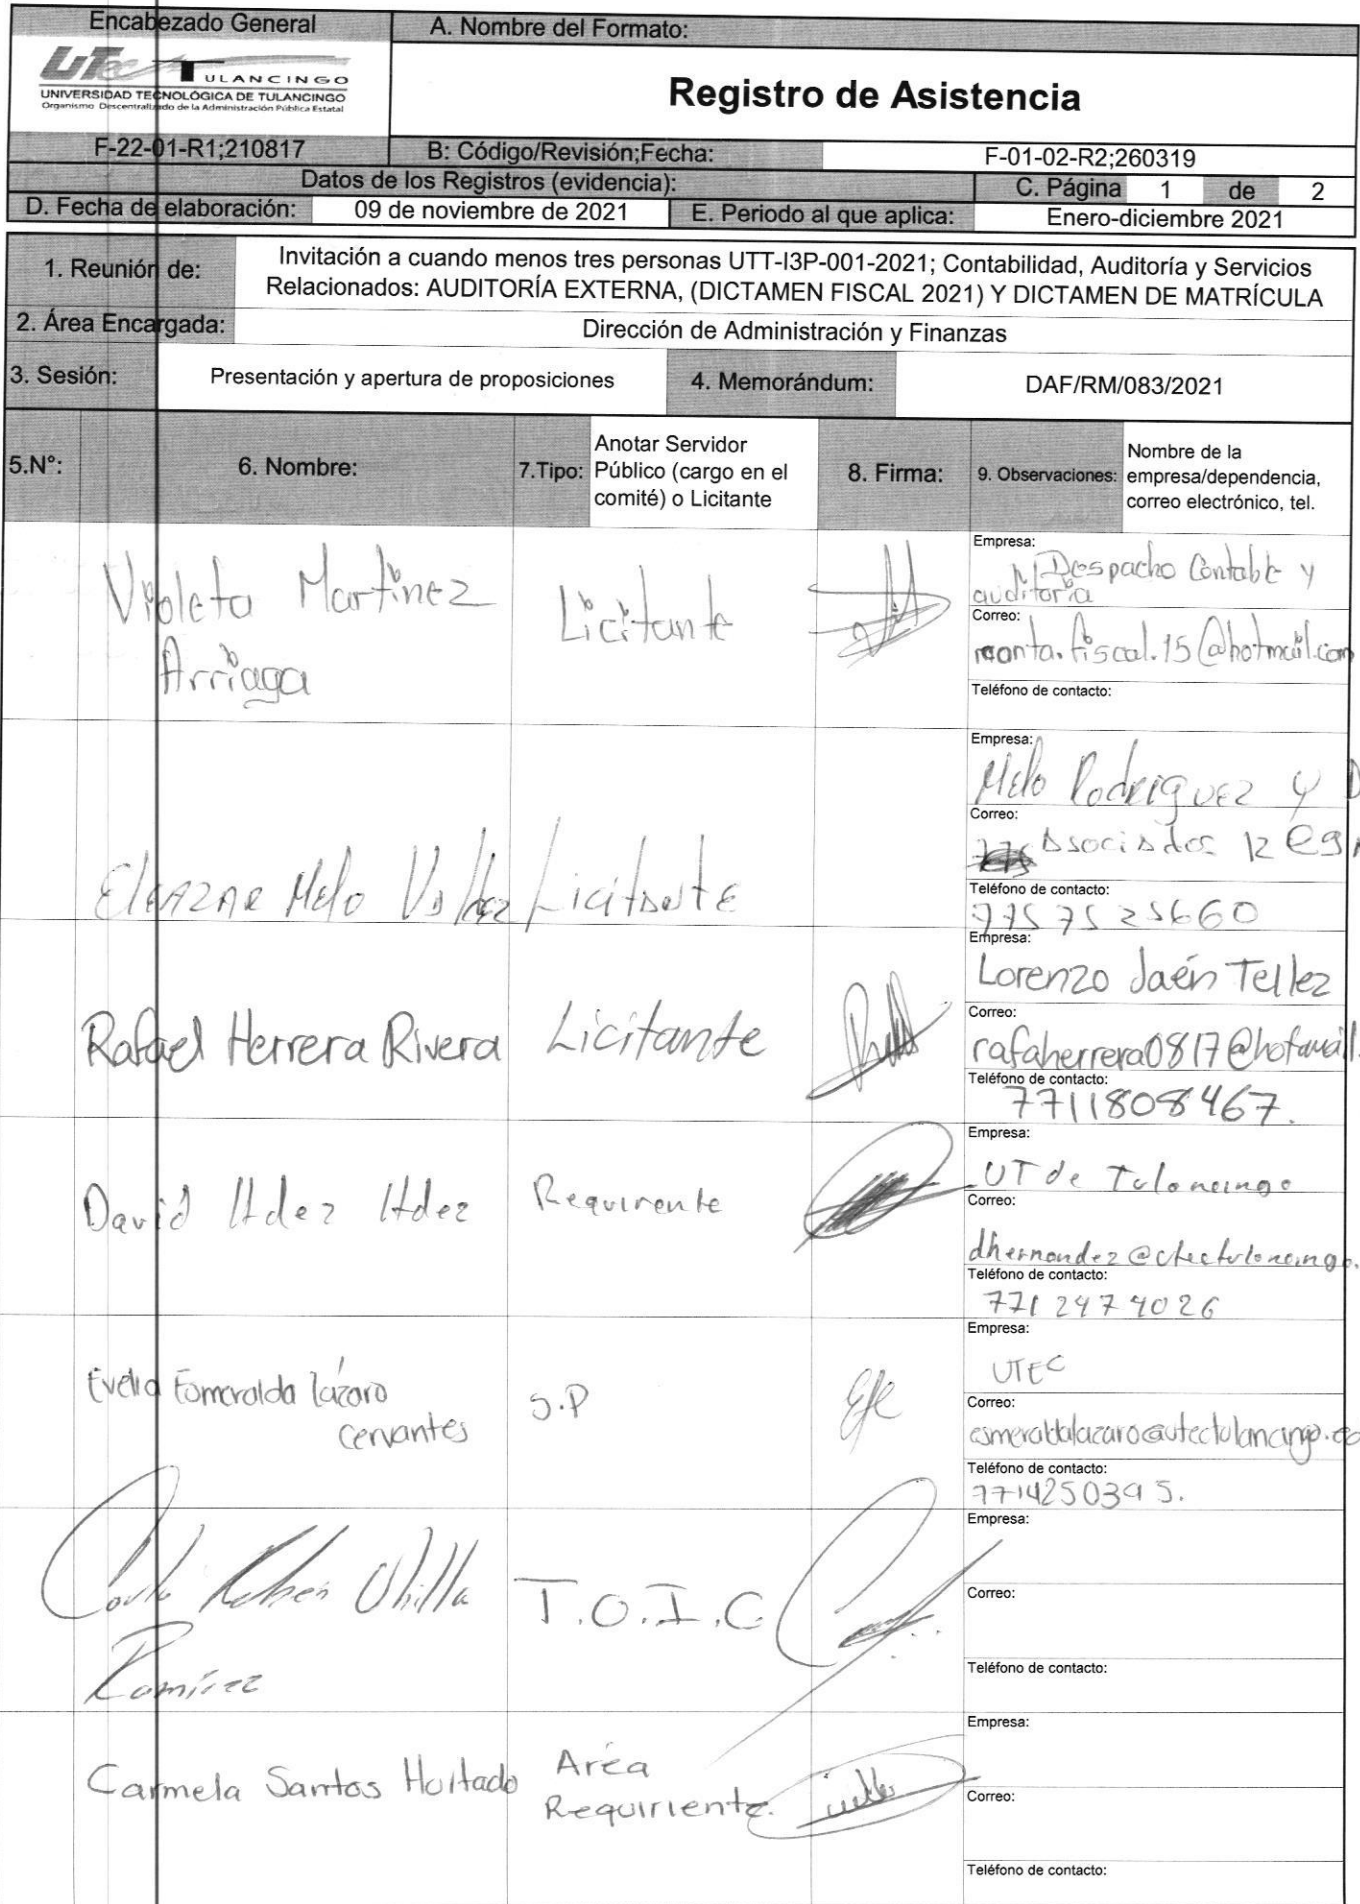 Encabezado General
A. Nombre del Formato:
UTec TULANCINGO
UNIVERSIDAD TECNOLÓGICA DE TULANCINGO
Organismo Descentralizado de la Administración Pública Estatal
Registro de Asistencia
F-22-01-R1;210817
B: Código/Revisión;Fecha:
F-01-02-R2;260319
Datos de los Registros (evidencia):
C. Página 1 de 2
D. Fecha de elaboración:
09 de noviembre de 2021
E. Periodo al que aplica:
Enero-diciembre 2021
1. Reunión de:
Invitación a cuando menos tres personas UTT-I3P-001-2021; Contabilidad, Auditoría y Servicios
Relacionados: AUDITORÍA EXTERNA, (DICTAMEN FISCAL 2021) Y DICTAMEN DE MATRÍCULA
2. Área Encargada:
Dirección de Administración y Finanzas
3. Sesión:
Presentación y apertura de proposiciones
4. Memorándum:
DAF/RM/083/2021
5.N°:
6. Nombre:
7.Tipo:
Anotar Servidor
Público (cargo en el
comité) o Licitante
8. Firma:
9. Observaciones:
Nombre de la
empresa/dependencia,
correo electrónico, tel.
Violeta Martinez
Arriaga
Licitante
Empresa:
Despacho Contable y
auditoria
Correo:
monta.fiscal.15@hotmail.com
Teléfono de contacto:
Eleazar Melo
Licitante
Empresa:
Melo Rodriguez y
Correo:
Asociados 12
Teléfono de contacto:
775 75 25660
Rafael Herrera Rivera
Licitante
Empresa:
Lorenzo Jaén Tellez
Correo:
rafaherrera0817@hotmail.
Teléfono de contacto:
7711808467.
David Hdez Hdez
Requirente
Empresa:
UT de Tulancingo
Correo:
dhernandez@utectulancingo.
Teléfono de contacto:
771 247 4026
Evelia Esmeralda lázaro
cervantes
S.P
Empresa:
UTEC
Correo:
esmeraldalazaro@utectulancingo.ed
Teléfono de contacto:
7714250395.
Ruben Ubilla
Ramírez
T.O.I.C
Empresa:
Correo:
Teléfono de contacto:
Carmela Santos Hurtado
Aréa
Requiriente.
Empresa:
Correo:
Teléfono de contacto: